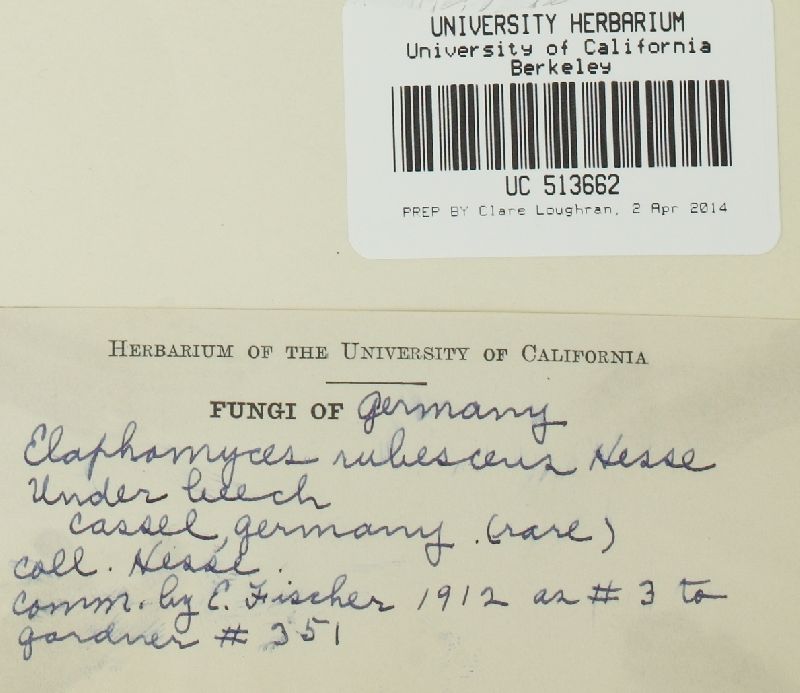 UNIVERSITY HERBARIUM
University of California
Berkeley
UC 513662
PREP BY Clare Loughran, 2 Apr 2014
HERBARIUM OF THE UNIVERSITY OF CALIFORNIA
FUNGI OF Germany
Elaphomyces rubescens Hesse
Under beech
Cassel, Germany. (rare)
coll. Hesse.
comm. by E. Fischer 1912 as # 3 to
gardner # 351